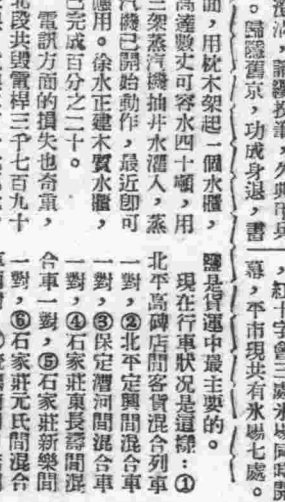 澄清,請纓投筆,久典甲兵
。歸隱舊京,功成身退,
面,用枕木架起一個水櫃,
高達數丈可容水四十噸,用
三架蒸汽機抽井水灌入,蒸
汽機已開始動作,最近卽可
應用。徐水正建木質水櫃,
已完成百分之二十。
電訊方面的損失也奇重,
北段共毀電桿三千七百九十
,紅十字會三處氷場同時開
幕,平市現共有氷場七處。
鹽是貨運中最主要的。
現在行車狀况是這樣:①
北平高碑店間客貨混合列車
一對,②北平定興間混合車
一對,③保定漕河間混合車
一對,④石家莊東長壽間混
合車一對,⑤石家莊新樂間
一對,⑥石家莊元氏間混合